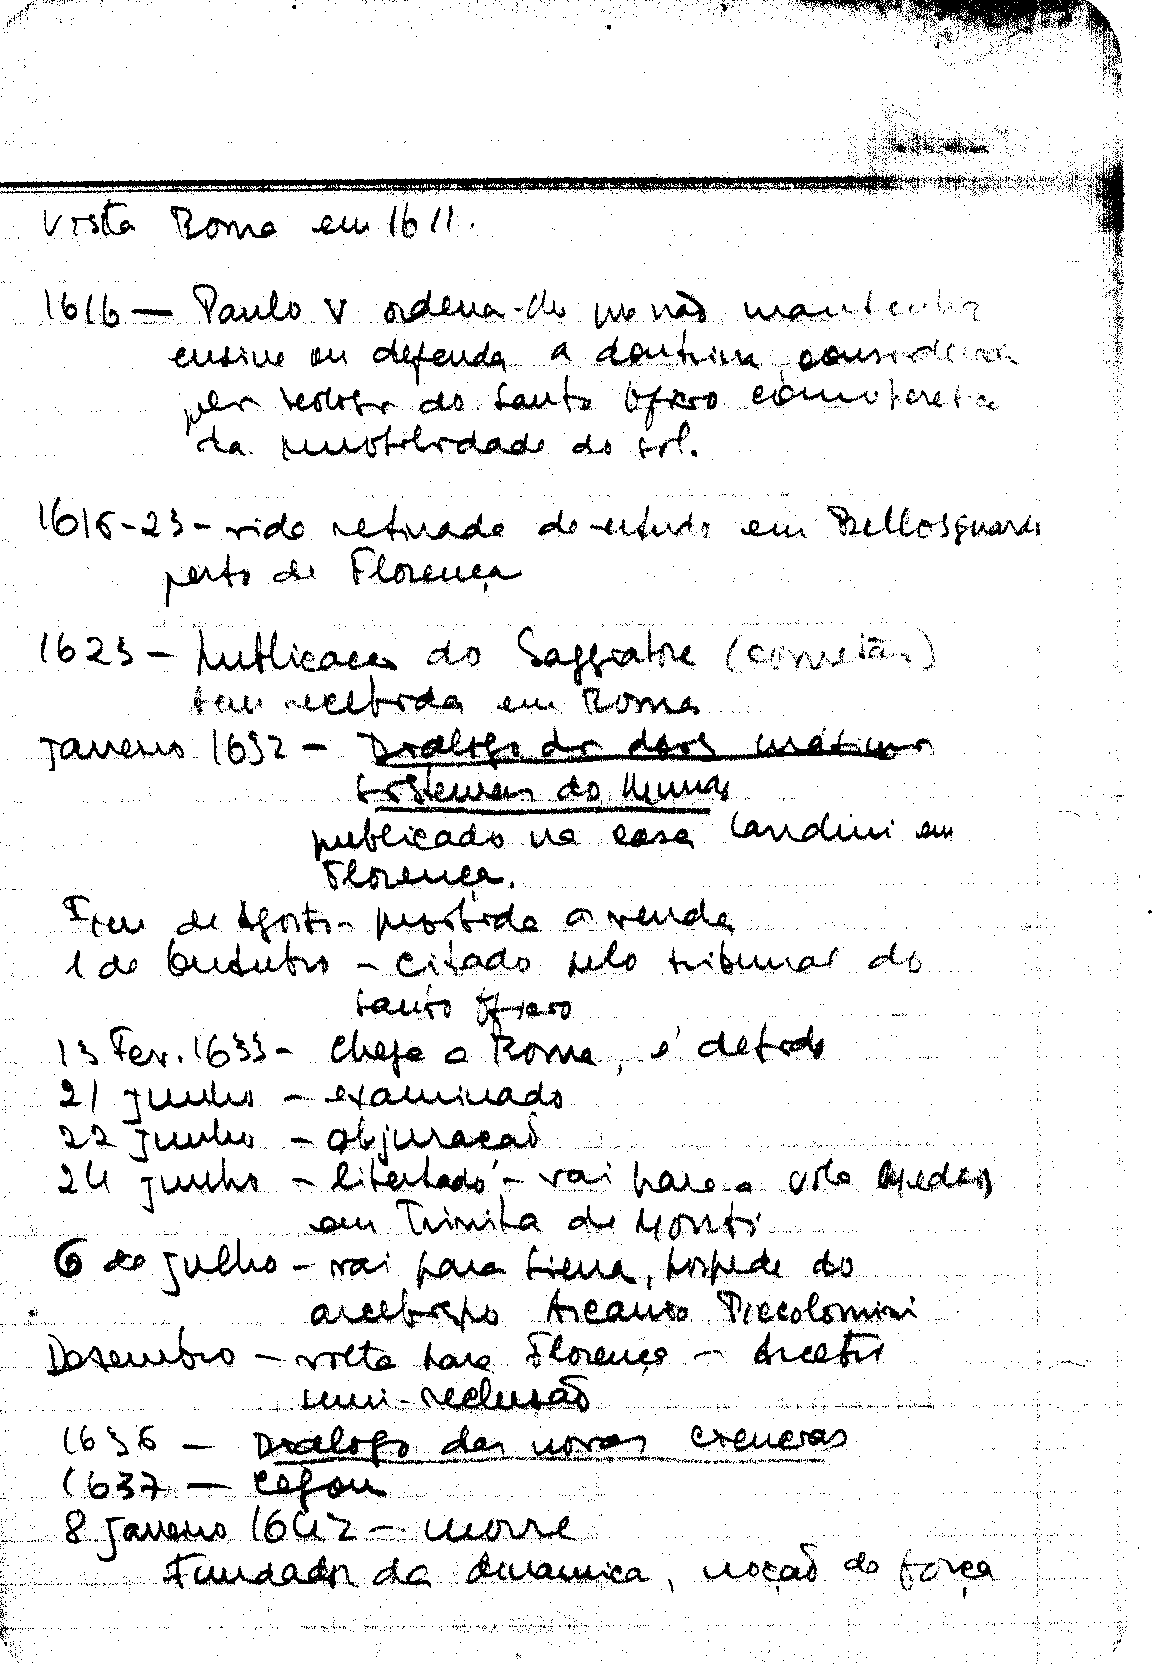 Visita Roma em 1611.
1616 — Paulo V ordena-lhe que não mantenha
ensine ou defenda a doutrina, considerada
por teólogos do Santo Ofício como herética
da imobilidade do sol.
1616-23 - vida retirada de estudo em Bellosguardo
perto de Florença
1623 - publicação do Saggiatore
bem recebida em Roma
Janeiro 1632 - Diálogo dos dois máximos
sistemas do Mundo
publicado na casa Landini em
Florença.
Fim de Agosto - proibida a venda
1 de Outubro - citado pelo tribunal do
Santo Ofício
13 Fev. 1633 - chega a Roma, é detido
21 junho - examinado
22 junho - abjuração
24 junho - libertado - vai para a vila Medicis
em Trinita de Monti
6 de julho - vai para Siena, hospede do
arcebispo Ascanio Piccolomini
Dezembro - volta para Florença - Arcetri
semi-reclusão
1636 - Diálogo das novas ciencias
1637 - cegou
8 Janeiro 1642 - morre
Fundador da dinamica, noção de força